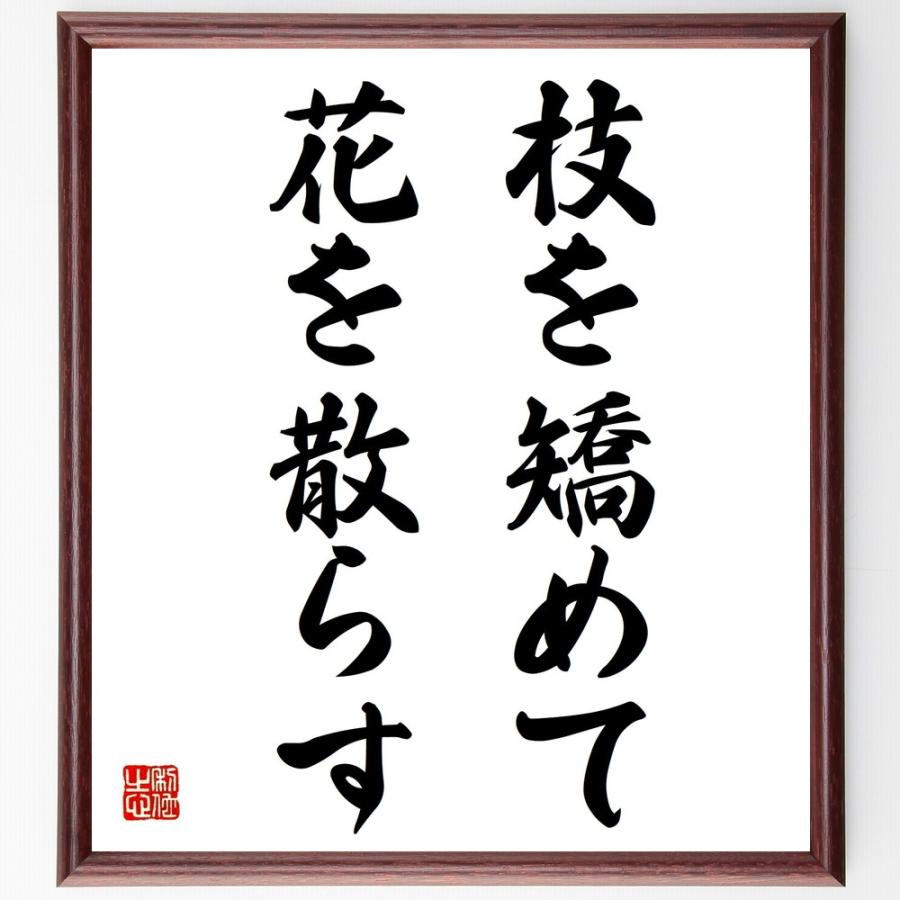 枝を矯めて
花を散らす